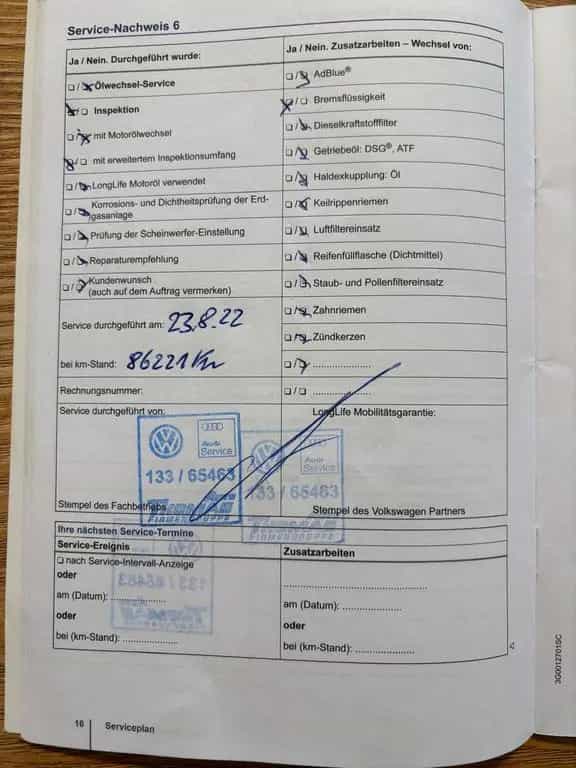 Service-Nachweis 6
Ja / Nein. Durchgeführt wurde:
☐/☒ Ölwechsel-Service
☒/☐ Inspektion
☐/☒ mit Motorölwechsel
☒/☐ mit erweitertem Inspektionsumfang
☐/☒ LongLife Motoröl verwendet
☐/☒ Korrosions- und Dichtheitsprüfung der Erd-
gasanlage
☐/☒ Prüfung der Scheinwerfer-Einstellung
☐/☒ Reparaturempfehlung
☐/☒ Kundenwunsch
(auch auf dem Auftrag vermerken)
Service durchgeführt am: 23.8.22
bei km-Stand: 86221 Km
Rechnungsnummer:
Service durchgeführt von:
Ja / Nein. Zusatzarbeiten – Wechsel von:
☐/☒ AdBlue®
☒/☐ Bremsflüssigkeit
☐/☒ Dieselkraftstofffilter
☐/☒ Getriebeöl: DSG®, ATF
☐/☒ Haldexkupplung: Öl
☐/☒ Keilrippenriemen
☐/☒ Luftfiltereinsatz
☐/☒ Reifenfüllflasche (Dichtmittel)
☐/☒ Staub- und Pollenfiltereinsatz
☐/☒ Zahnriemen
☐/☒ Zündkerzen
☐/☒ ....................
☐/☐ ....................
LongLife Mobilitätsgarantie:
Audi
Service
133 / 65463
THOMAS
FIRMENGRUPPE
Audi
Service
133 / 65463
THOMAS
FIRMENGRUPPE
Stempel des Fachbetriebs
Stempel des Volkswagen Partners
Ihre nächsten Service-Termine
Service-Ereignis
☐ nach Service-Intervall-Anzeige
oder
am (Datum): ...................
oder
bei (km-Stand): ...................
Zusatzarbeiten
................................................
am (Datum): ....................
oder
bei (km-Stand): ....................
133 / 65463
16
Serviceplan
3G0012701SC